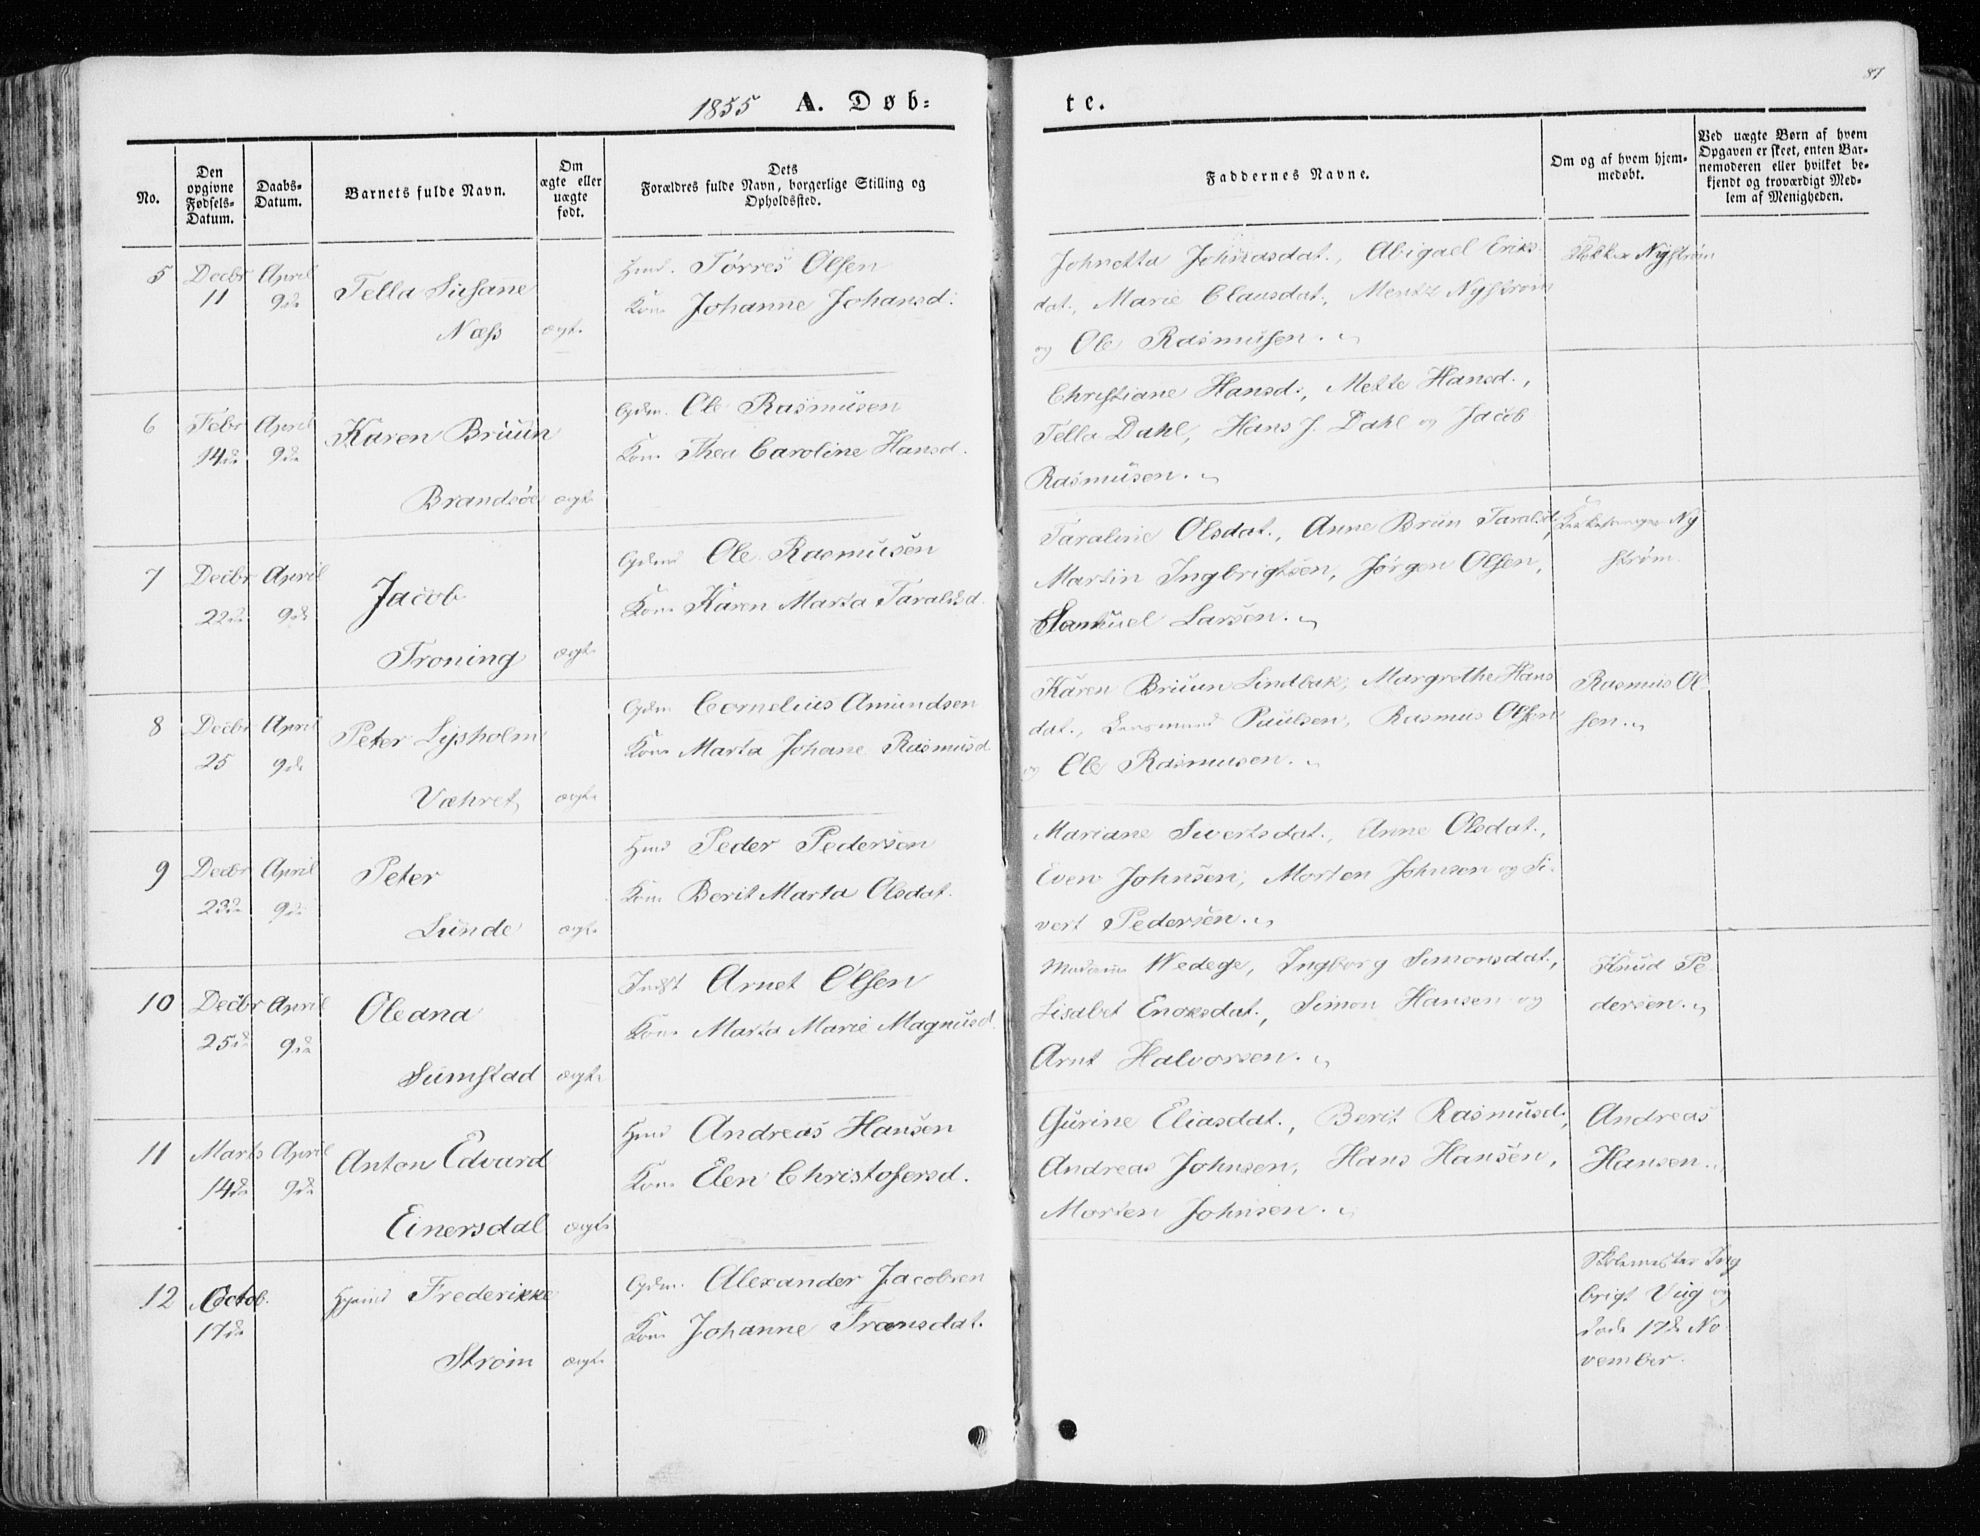 1855 A. Døb=
te.
87
No.
Den opgivne Fødsels-Datum.
Daabs-Datum.
Barnets fulde Navn.
Om ægte eller uægte født.
Dets Forældres fulde Navn, borgerlige Stilling og Opholdssted.
Faddernes Navne.
Om og af hvem hjemmedøbt.
Ved uægte Børn af hvem Opgaven er skeet, enten Barnemoderen eller hvilket bekjendt og troværdigt Medlem af Menigheden.
5 Decbr April
11 9de
Tella Susane
Næss ægte
Hmd. Tørres Olsen
Kone Johanne Johansd:
Johnetta Johnasdat., Abigael Eriks-
dat., Marie Clausdat., Mentz Nystrøm
og Ole Rasmusen.
Nystrøm
6 Febr April
14de 9de
Karen Bruun
Brandsøe ægte
Gdm. Ole Rasmusen
Kone Thea Caroline Hansd.
Christiane Hansd., Mette Hansd.,
Tella Dahl, Hans J. Dahl og Jacob
Rasmusen.
7 Decbr April
22de 9de
Jacob
Troning ægte
Gdmd Ole Rasmusen
Kone Karen Marta Taralsd.
Taraline Olsdat., Anne Brun Taralsd.,
Martin Ingbrigtsen, Jørgen Olsen,
Samuel Larsen.
Ny
strøm.
8 Decbr April
25 9de
Peter Lysholm
Væhret ægte
Gdm Cornelius Amundsen
Kone Marta Johane Rasmusd
Karen Bruun Lindbak, Margrethe Hans
dat., Lensmand Paulsen, Rasmus Olsen
og Ole Rasmusen.
Rasmus Ol
sen.
9 Decbr April
23de 9de
Peter
Sunde ægte
Hmd Peder Pedersen
Kone Berit Marta Olsdat.
Mariane Sivertsdat., Anne Olsdat.,
Even Johnsen, Morten Johnsen og Si-
vert Pedersen.
10 Decbr April
25de 9de
Oleana
Sumstad ægte
Indst Arnet Olsen
Kone Marta Marie Magnusd.
Madame Wedege, Ingborg Simonsdat.,
Lisabet Enoksdat., Simon Hansen og
Arnt Halvorsen.
Knud Pe
dersen.
11 Marts April
14de 9de
Anton Edvard
Einersdal ægte
Hmd Andreas Hansen
Kone Elen Christofersd.
Gurine Eliasdat., Berit Rasmusd.,
Andreas Johnsen, Hans Hansen,
Morten Johnsen.
Andreas
Hansen.
12 Octob.
17de
Frederikke
Strøm ægte
Gdm. Alexander Jacobsen
Kone Johanne Fransdat.
Skolemester Ing
brigt Viig og
døde 17de No
vember.